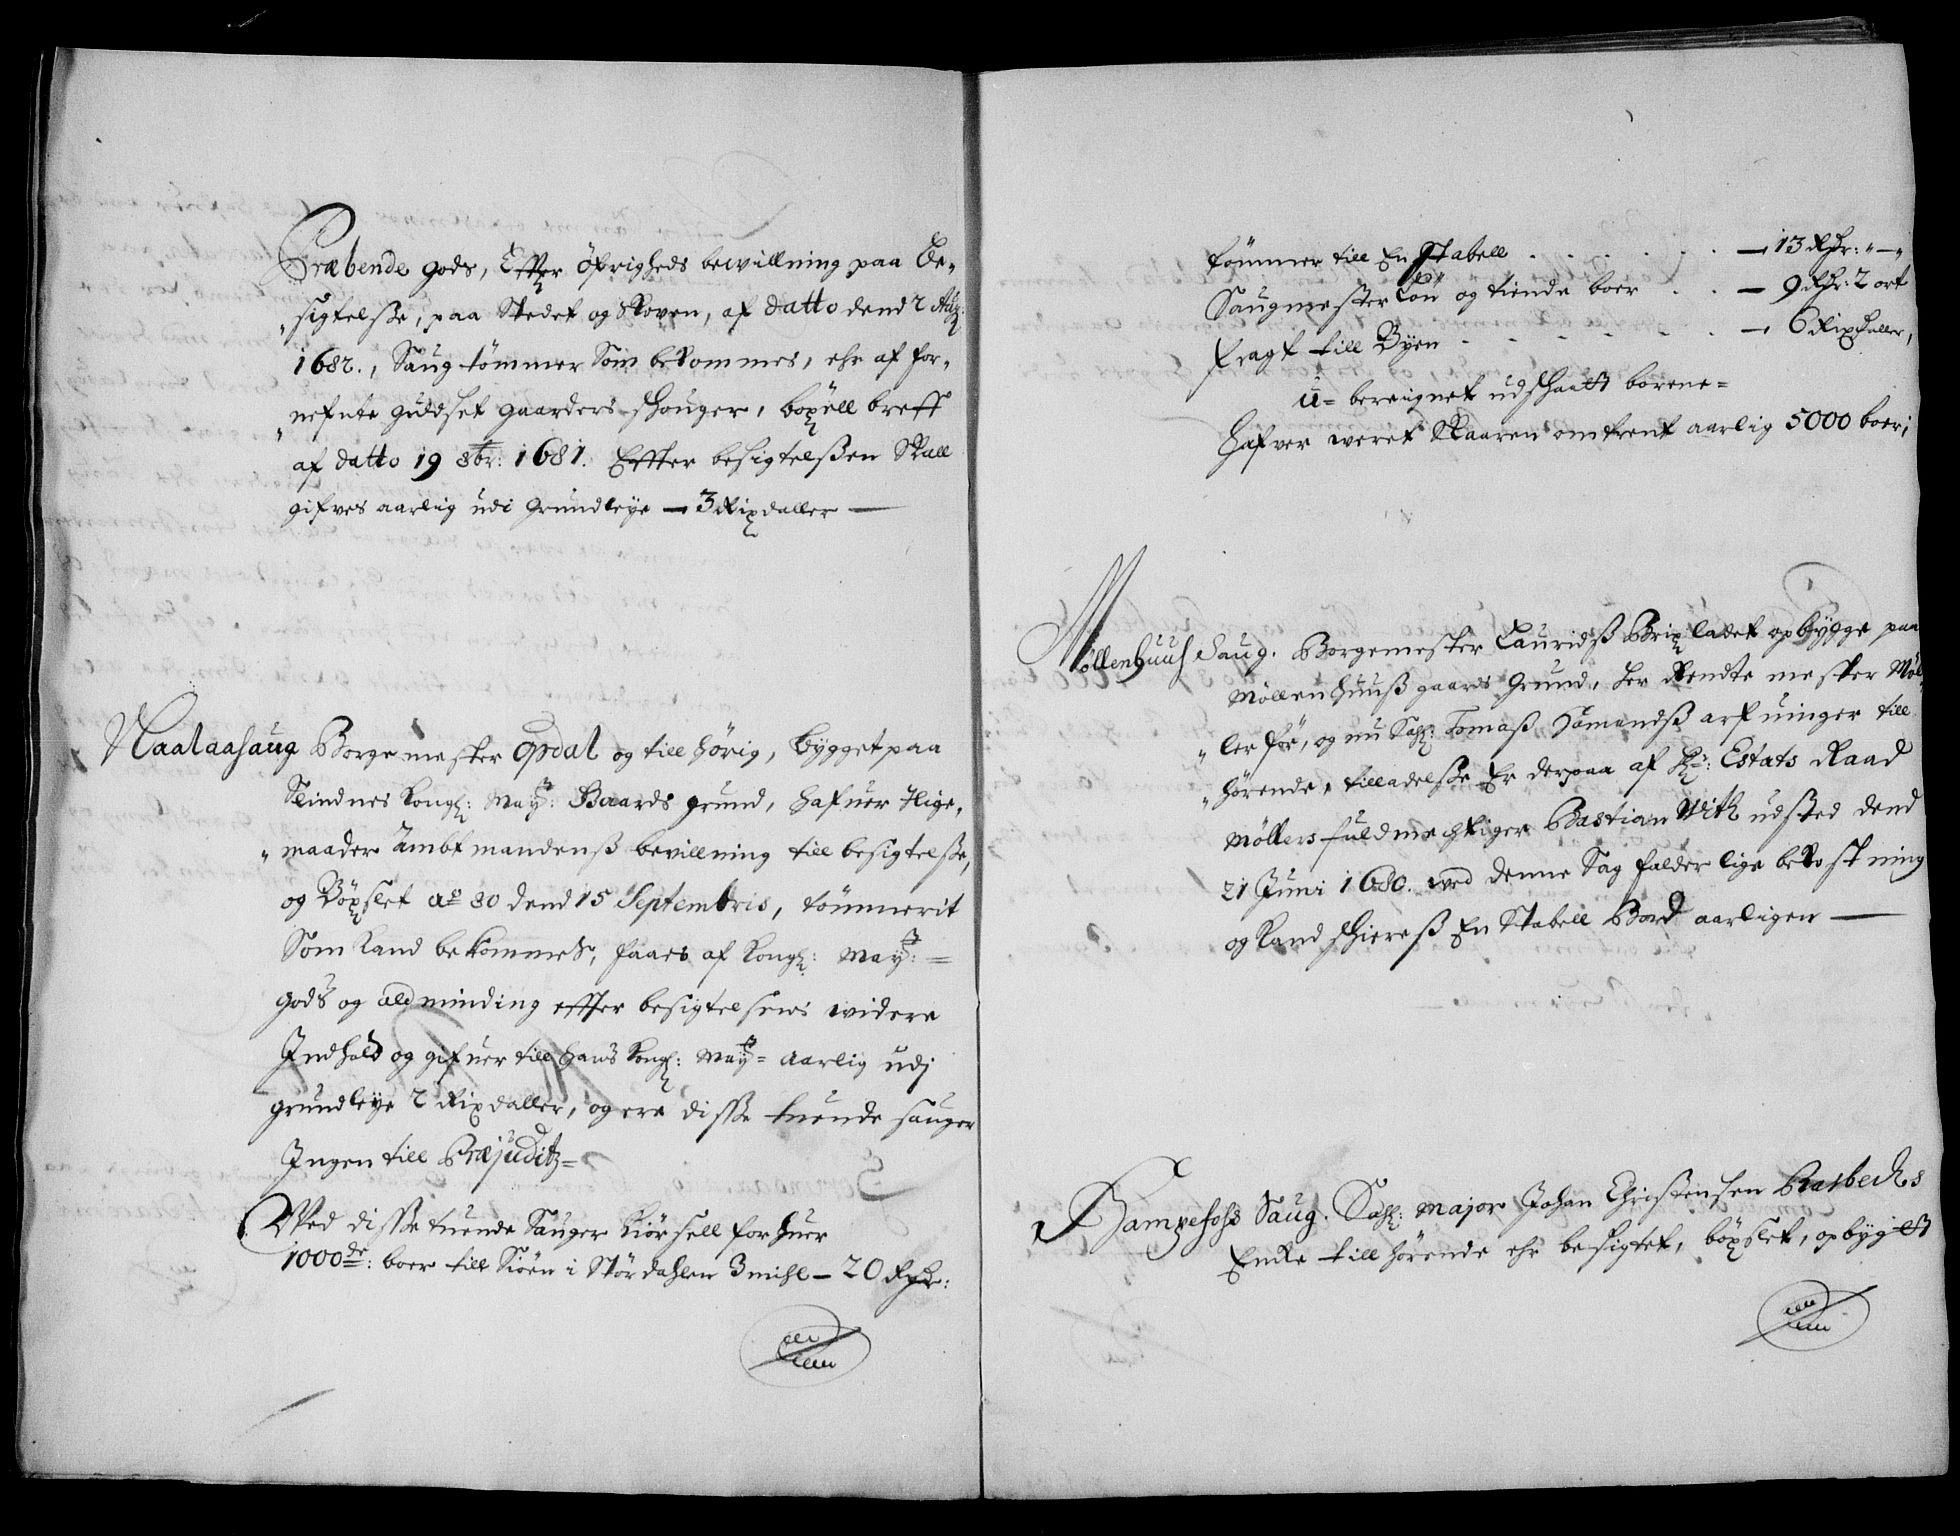 Præbende gods, Effter Öfrigheds bewillning paa Be„
„sigtelsse, paa Stedet og Skoven, af datto dend 2 Aug:
1682., Saug tömmer Som bekommes, ehr af for„
„nefnte guldset gaarders skouger, böxell breff
af datto 19 8br: 1681. Effter besigtelßen Skall
gifves aarlig udi Grundleÿe — 3 Rixdaller —
Naalaasaug Borgemester opdal og till hörig, bÿgget paa
Slindnes Kongl: Maÿ: Baards grund, hafuer Ilige„
„maader Ambtmandenß bevillning till besigtelsse,
og Böxslet ao 80 dend 15 Septembris, tömmerit
Som Kand bekommes, faaes af Kongl: Maÿ: =
gods og aldminding effter besigtelsens widere
Indhold og gifuer till hans Kongl: Maÿ= aarlig udj
grundleÿe 2 Rixdaller, og ere disse tuende sauger
Ingen till Præjuditz=
Wed disse tuende Sauger Kiörsell for huer
1000de: boer till Siöen i Stördahlen 3 mihl — 20 Rdr:
tömmer till En Stabell . . . . . — 13 Rdr: „ — „
Saugmester Lön og tiende boer . . — 9 Rdr: 2 ort
fragt till Bÿen . . . . . — 6 Rixdaller,
u= beregnet udskaatt borene=
Hafver weret Skaaren omtrent aarlig 5000 boer;
Möllenhuuß Saug. Borgemester Lauridß Brix ladet opbÿgge paa
Möllenhuuß gaards Grund, Her Rendtemester Möl„
„ler for, og nu Sahl: Tomaß Hamandß arfuinger till„
„hörende, tilladelsse Er derpaa af Hr: Estats Raad
Möllers fuldmechtiger Bastian With udsted dend
21 Juni 1680. wed denne Sag falder lige bekostning
og Kand skiereß En Stabell Bord aarligen —
Hampefoß Saug. Sahl: Major Johan Christensen Basbechs
Encke till hörende ehr besigtet, böxslet, opbÿgett